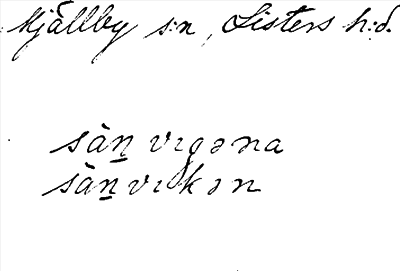 Mjällby s:n, Listers h:d.
sàn̲ vıgəna
sàn̲ vıkən